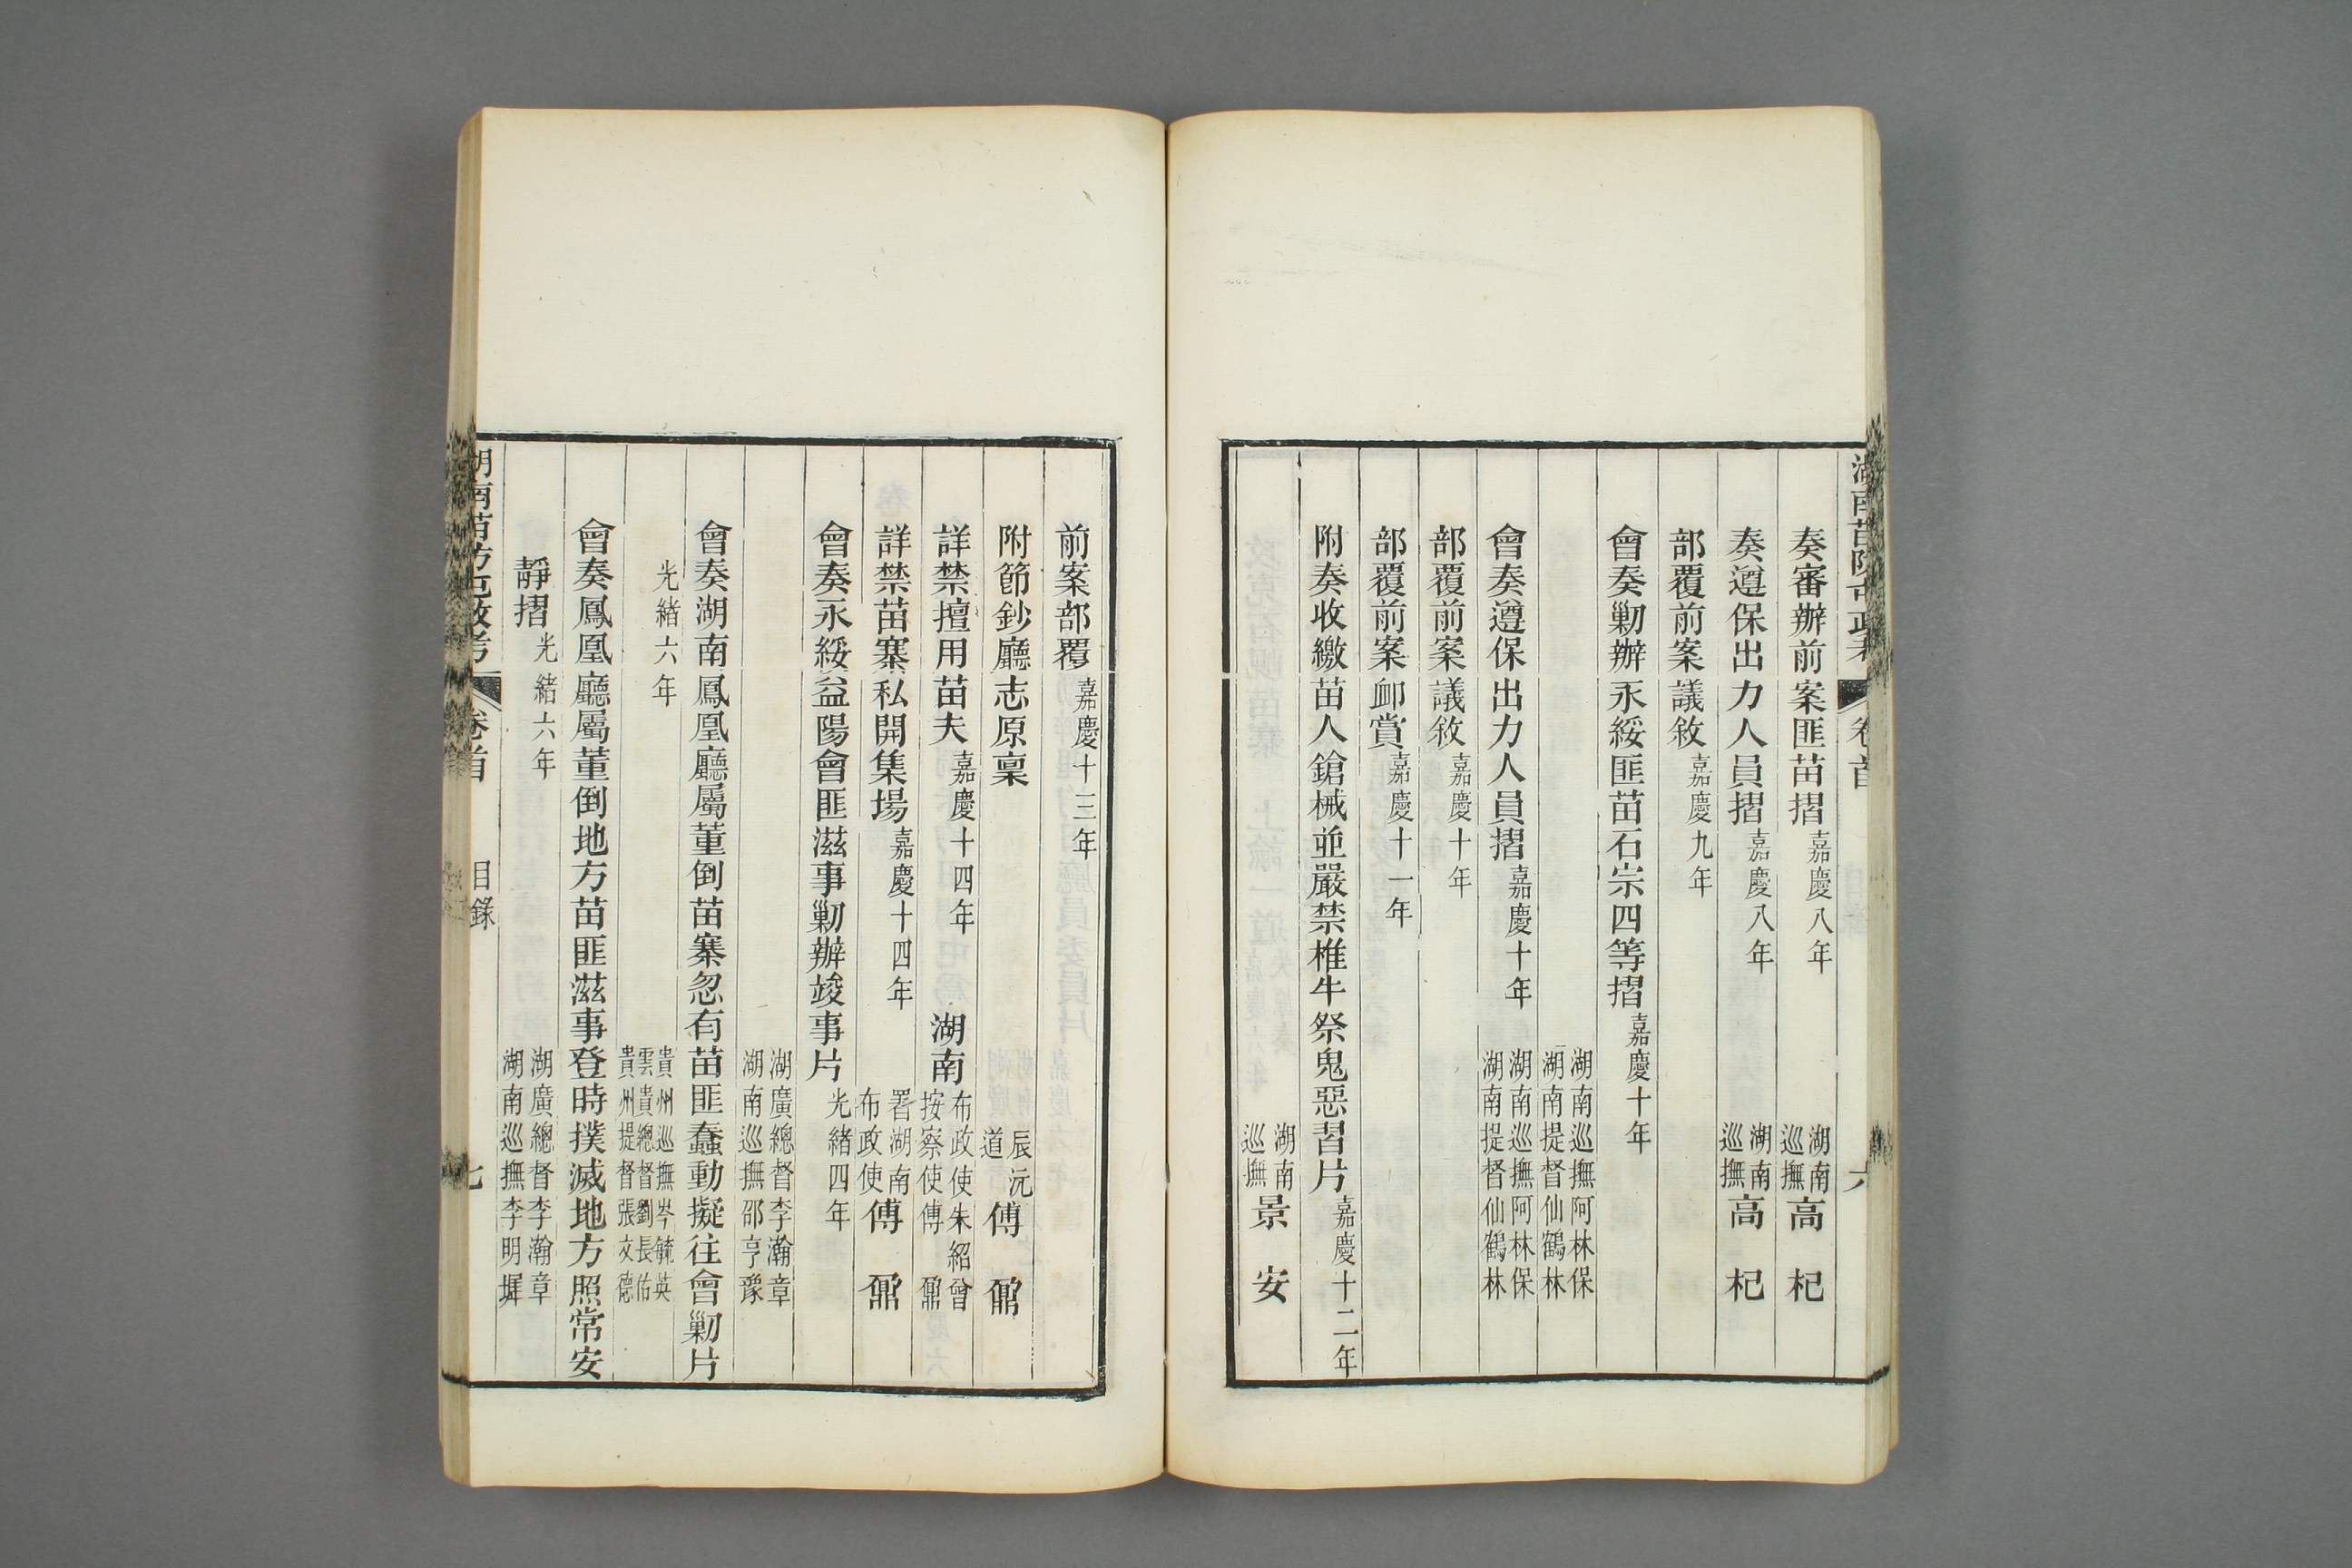 奏審辦前案匪苗摺嘉慶八年 湖南巡撫高杞
奏遵保出力人員摺嘉慶八年 湖南巡撫高杞
部覆前案議敘嘉慶九年
會奏剿辦永綏匪苗石宗四等摺嘉慶十年
湖南巡撫阿林保湖南提督仙鶴林
會奏遵保出力人員摺嘉慶十年 湖南巡撫阿林保湖南提督仙鶴林
部覆前案議敘嘉慶十年
部覆前案卹賞嘉慶十一年
附奏收繳苗人鎗械並嚴禁椎牛祭鬼惡習片嘉慶十二年
湖南巡撫景安
前案部覆嘉慶十三年
附節鈔廳志原稟 辰沅道傅鼐
詳禁擅用苗夫嘉慶十四年 湖南布政使朱紹曾按察使傅鼐
詳禁苗寨私開集場嘉慶十四年 署湖南布政使傅鼐
會奏永綏益陽會匪滋事剿辦竣事片光緒四年
湖廣總督李瀚章湖南巡撫邵亨豫
會奏湖南鳳凰廳屬董倒苗寨忽有苗匪蠢動擬往會剿片
光緒六年 貴州巡撫岑毓英雲貴總督劉長佑貴州提督張文德
會奏鳳凰廳屬董倒地方苗匪滋事登時撲滅地方照常安
靜摺光緒六年 湖廣總督李瀚章湖南巡撫李明墀
湖南苗防屯政考 卷首 目錄 七